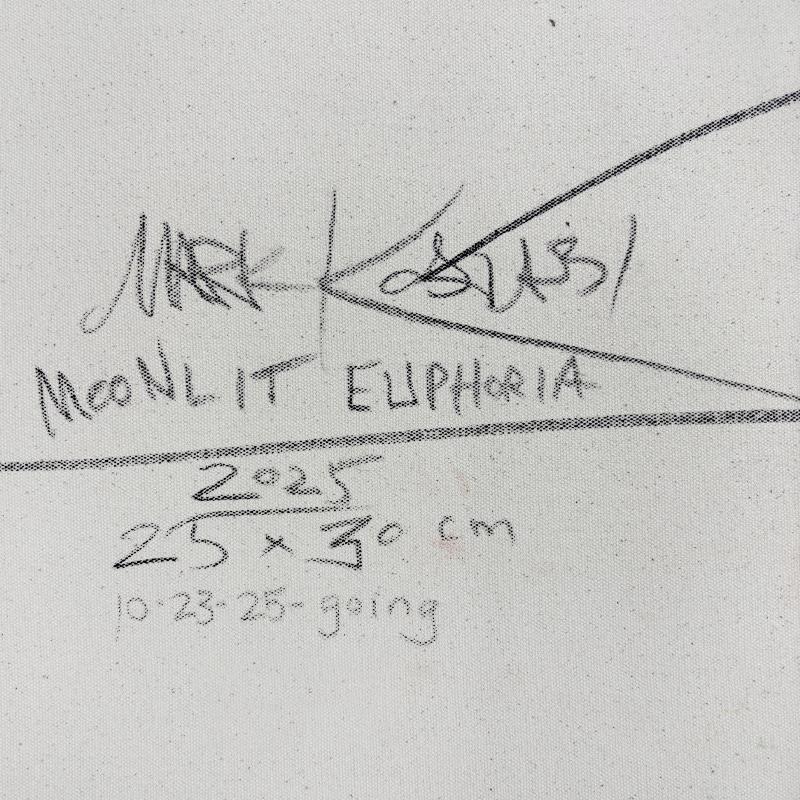 MARK
MOONLIT EUPHORIA
2025
25 x 30 cm
10-23-25-going